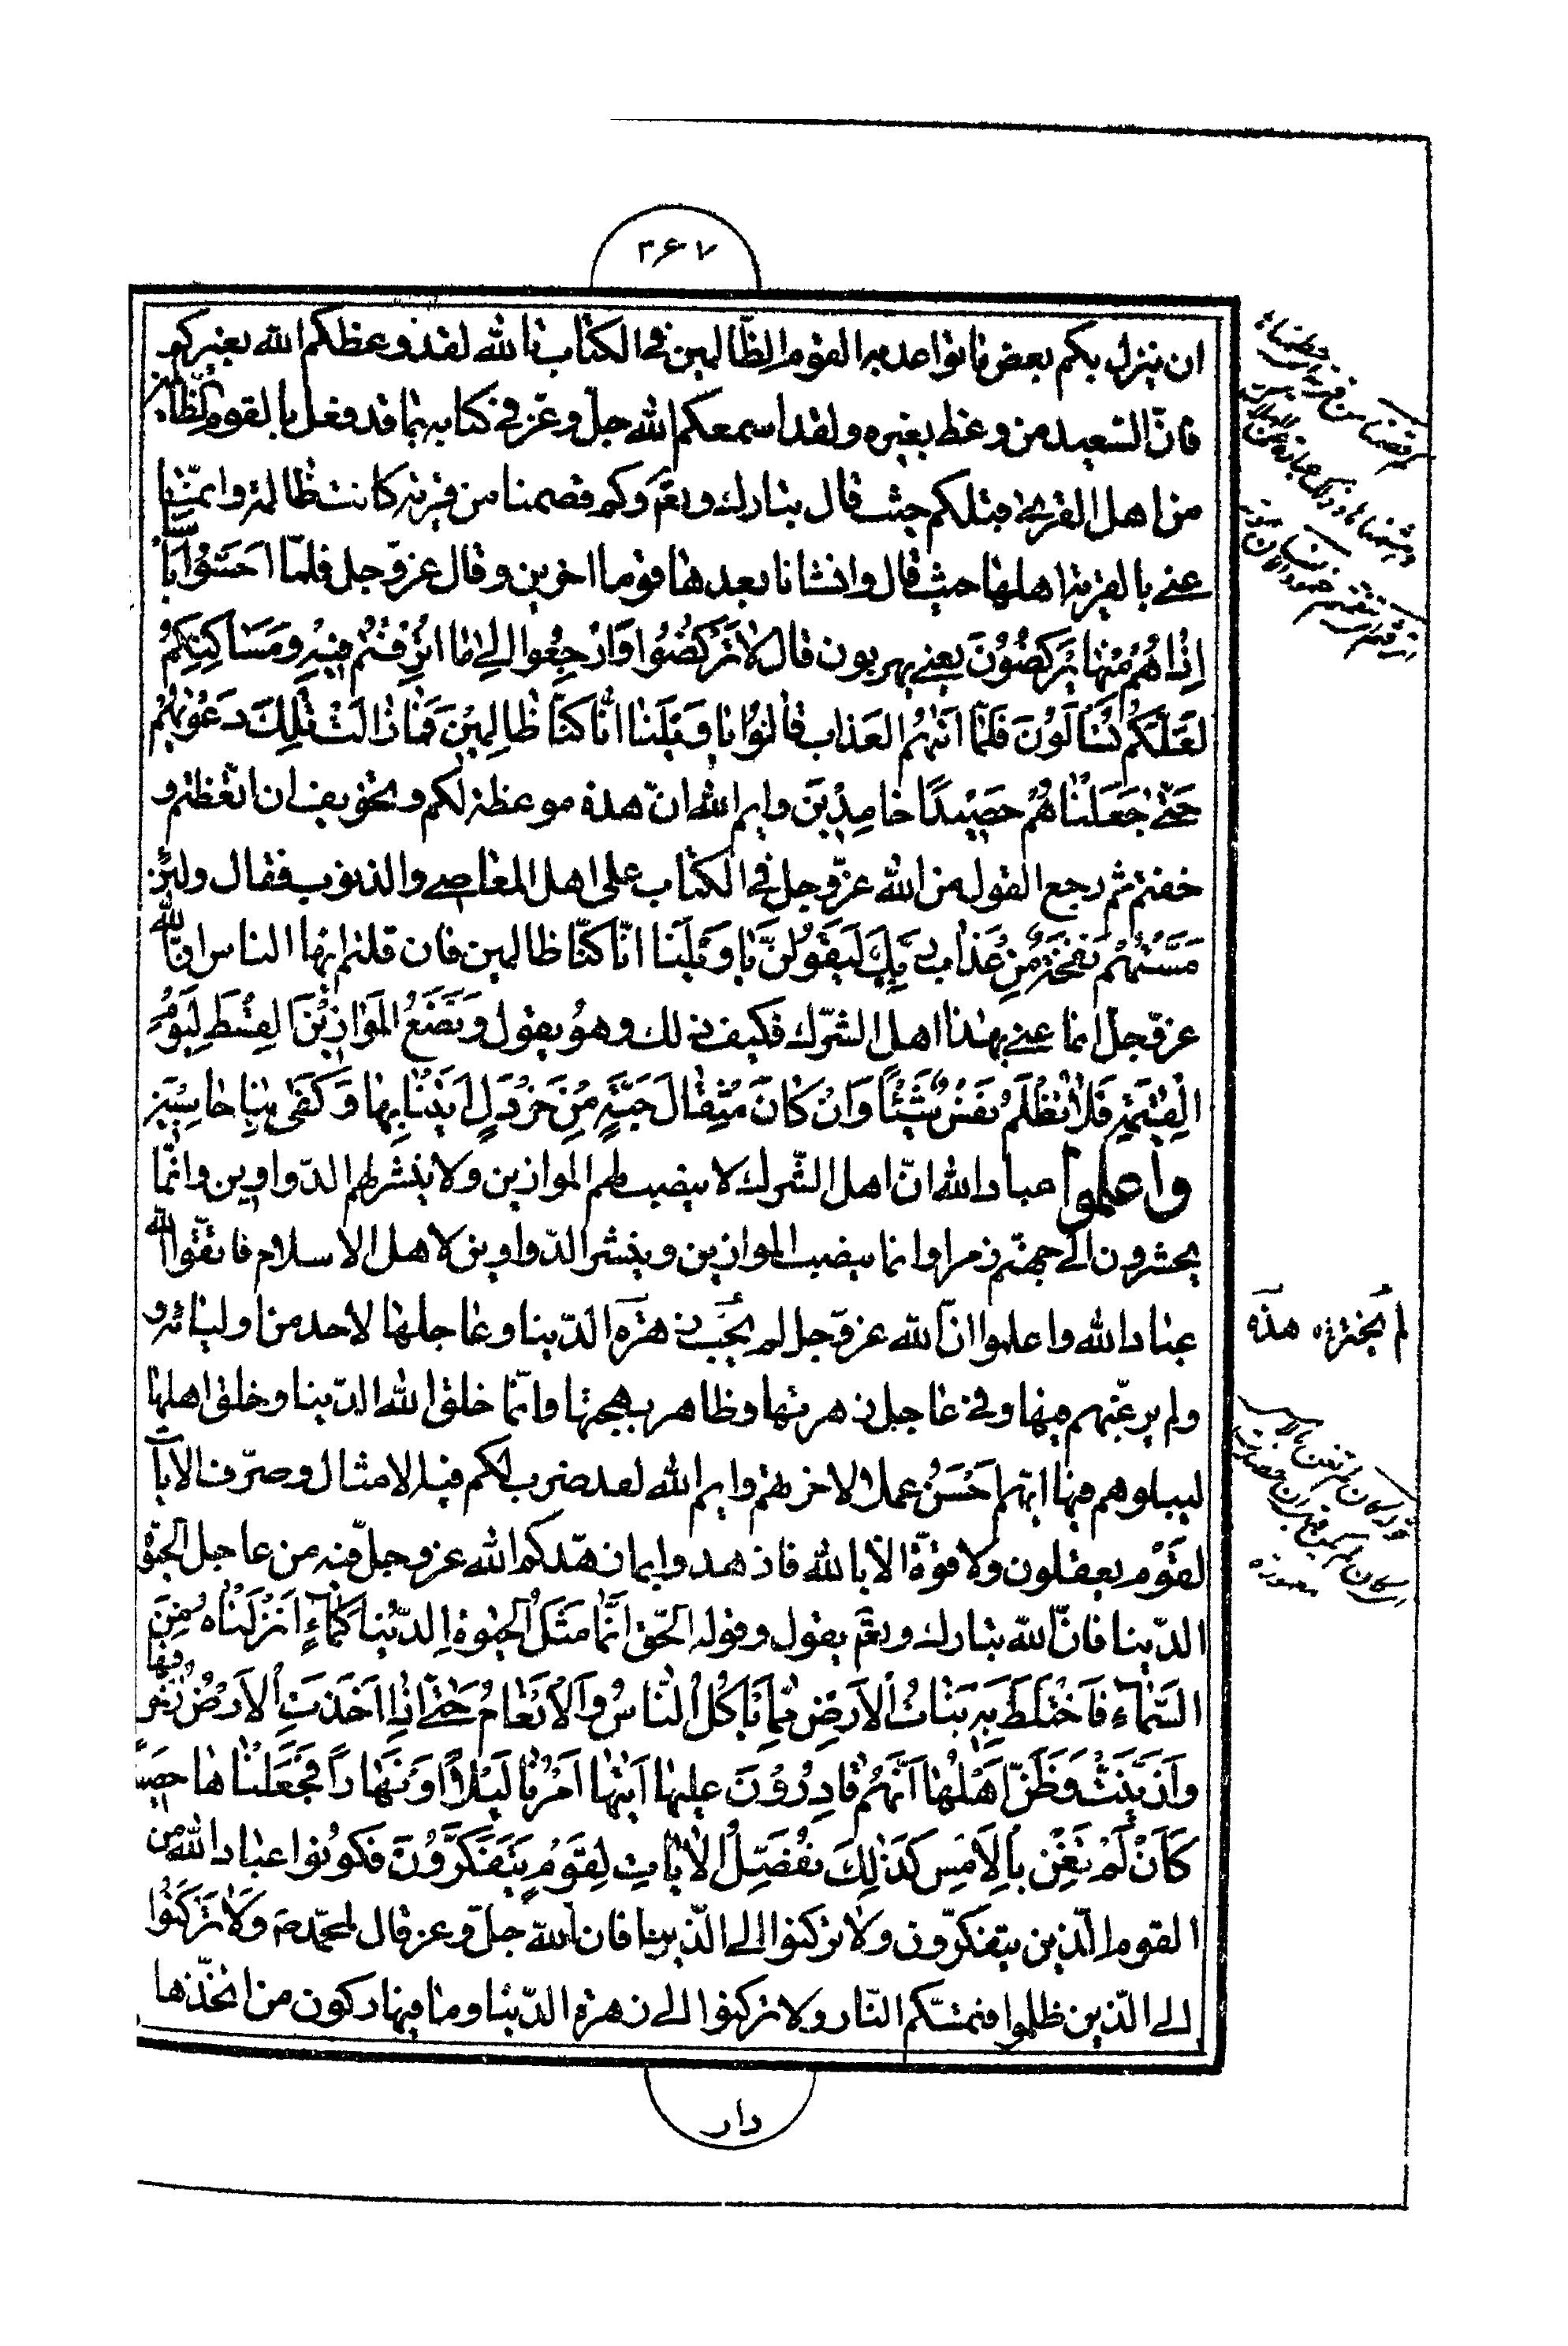 ٢٦٧
ان ينزل بكم بعض ما تواعد به القوم الظالمين في الكتاب تالله لقد وعظكم الله بغيركم
فانّ السعيد من وعظ بغيره ولقد اسمعكم الله جلّ وعزّ في كتابه بما قد فعل بالقوم الظّالمين
من اهل القرى قبلكم حيث قال تبارك وتعم وكم قصمنا من قرية كانت ظالمة وانمّا
عنى بالقرية اهلها حيث قال وانشانا بعدها قوما اخرين وقال عزّوجل فلمّا احَسّوُا بَأسَنا
اِذا هُمْ مِنْها يَركضُوُنَ يعنى يهربون قال لا تَركُضُوُا وَارْجِعُوا الى ما اُترِفْتُم فيهِ ومَسَاكِنِكُمْ
لَعَلَّكُم تُسْأَلَوُنَ فَلمّا اَتيهُم العَذاب قالوُا يا وَيْلَنا انّا كنّا ظالِميْنَ فَما زالَتْ تِلْكَ دَعْويهُمْ
حَتّى جَعَلْناهُمْ حصَيْدًا خامِديْنَ وايم الله انّ هذه موعظة لكم وتخويف ان اتّعظتم و
خفتم ثم رجع القول من الله عزّوجل في الكتاب على اهل المعاصى والذنوب فقال ولئِن
مَسَّتْهُمْ نَفْحَةٌ مِنْ عَذابِ رَبِّكَ لَيَقَوُلُنَّ يا وَيْلَنا انّا كنّا ظالمين فان قلتم ايّها الناس انّ الله
عزّوجلّ انما عنى بهذا اهل الشّرك فكيف ذلك وهوُ يقول وَنَضَعُ المَوازيْنَ القِسْطَ لِيَوْمِ
الْقِيٰمَةِ فَلا تُظْلَمُ نَفَسٌ شَيْئًا وَاِنْ كانَ مِثْقالَ حَبَّةٍ مِنْ خَرْدَلٍ اَتَيْنا بِها وَكَفى بِنا حاسِبيْنَ
واعلموا عباد الله انّ اهل الشّرك لا ينصب لهم الموازين ولا ينشر لهم الدّواوين وانمّا
يحشرون الى جهنّم زمرا وانما ينصب الموازين وينشر الدّواوين لاهل الاسلام فاتقّوا الله
عباد الله واعلموا انّ الله عزّوجل لم يُحَبِّ زهرَة الدّينا وعاجلها لاحد من اوليائه و
لم يُخْتِرْ هذه
ولم يرغّبهم فيها وفى عاجل زهرتها وظاهر بهجتها وانمّا خلق الله الدّنيا وخلق اهلها
ليبلوهم فيها ايّهم اَحْسَنُ عملا لاخرتهم وايم الله لقد ضرب لكم فيه الامثال وصرّف الايات
لقَوْم يعقلون ولا قوّة الّا بالله فازهدوا فيما زهّدكم الله عزوجلّ فيه من عاجل الحيوة
الدّنيا فانّ الله تبارك وتعم يقول وقوله الحّق انّما مَثَلُ الحَيوةِ الدّنيا كَماءٍ اَنزَلْناهُ مِنَ
السَّماءِ فَاخْتَلَطَ بِهِ نَباتُ الْاَرضِ مِمّا يَأكُلُ النّاسُ وَالْاَنْعامُ حَتّى اِذا اَخَذتِ الْاَرْضُ زُخْرُفَها
وَازّيَّنَتْ وَظَنَّ اَهْلُها اَنَّهُم قادِرُوْنَ عليها اَتيها اَمْرُنا لَيْلًا اَوْ نَهارًا فَجَعَلْناها حصيدًا
كَاَنْ لَمْ تَغْنَ بِالْاَمْسِ كَذلِكَ نُفَصّلُ الْاياتِ لِقَوْمٍ يَتَفَكَّروُنَ فكونوُا عباد الله من
القوم الّذين يتفكّرون ولا تركنوا الى الدّنيا فان الله جلّ وعز قال لمحمّد صَ وَلا تَركَنُوا
الى الّذين ظلموا فتمسّكم النّار ولا تركنوا الى زهرة الدّنيا وما فيها ركون من اتخّذها
دار